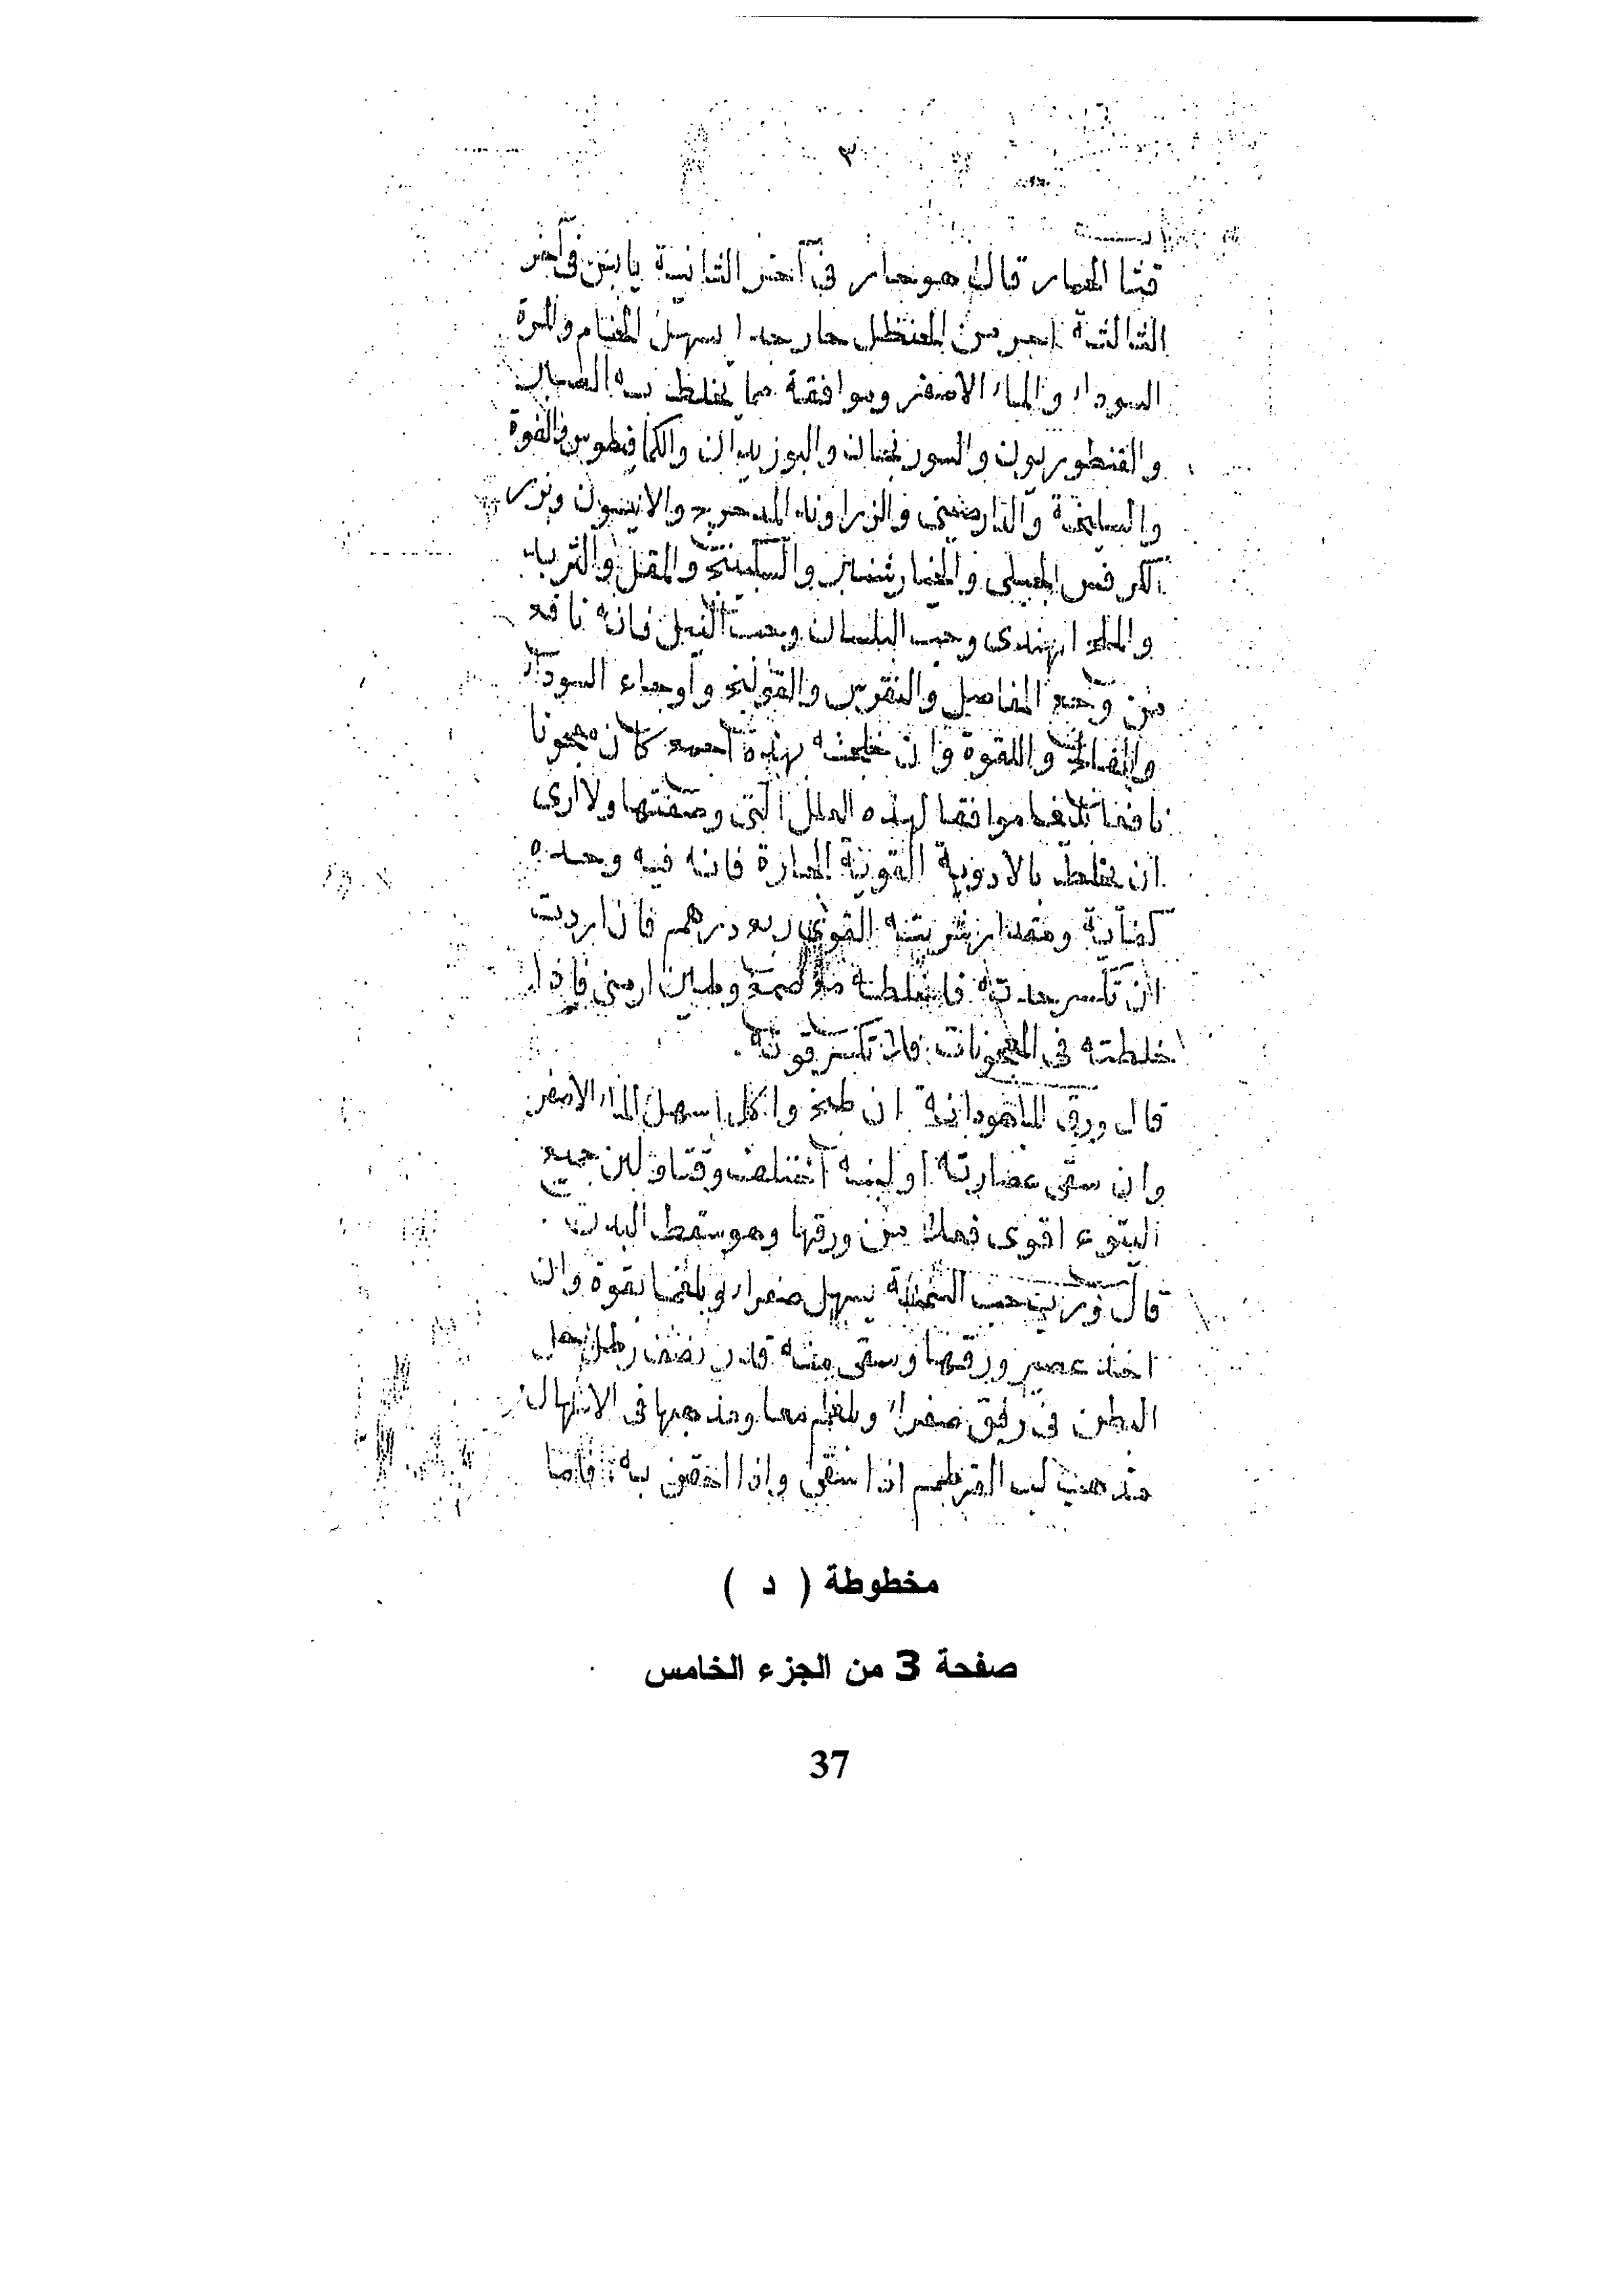 ٣
قثا الحمار قال هو حار في آخر الثانية يابس في آخر
الثالثة من الحنظل حار جدا يسهل الخام والمرة
السوداء والماء الاصفر وموافقة مما يخلط به الصبر
والقنطوريون والسورنجان والبوزيدان والكمافيطوس والفوة
والسليخة والدارصيني والزراوند المدحرج والانيسون وبزر
الكرفس الجبلي والسكبينج والمقل والتربد
والملح الهندي وحب البلسان وحب النيل فانه نافع
من وجع المفاصل والنقرس والقولنج واوجاع السوداء
والفالج واللقوة وان خلطته بهذه اجمع كان معجونا
نافعا موافقا لهذه العلل التي وصفتها ولا ارى
ان يخلط بالادوية القوية الحارة فانه فيه وحده
كفاية ومقدار شربته القوى ربع درهم فان اردت
ان تكسر حدته فاخلطه مع صمغ وطين ارمني فاذا
خلطته في المعجونات فلا تكسر قوته
قال ورق الماهودانة ان طبخ واكل اسهل الماء الاصفر
وان سقى عصارته او لبنه اختلف وقتا ولبن جميع
اليتوع اقوى فعلا من ورقها وهو سقط البدن
قال حب يسهل صفراء وبلغما بقوة وان
اخذ عصير ورقها وسقى منه قدر نصف رطل
البطن في رفق صفراء وبلغم معا ومذهبها في الاسهال
مذهب لب القرطم اذا سقى واذا احتقن به فاما
مخطوطة ( د )
صفحة 3 من الجزء الخامس
37